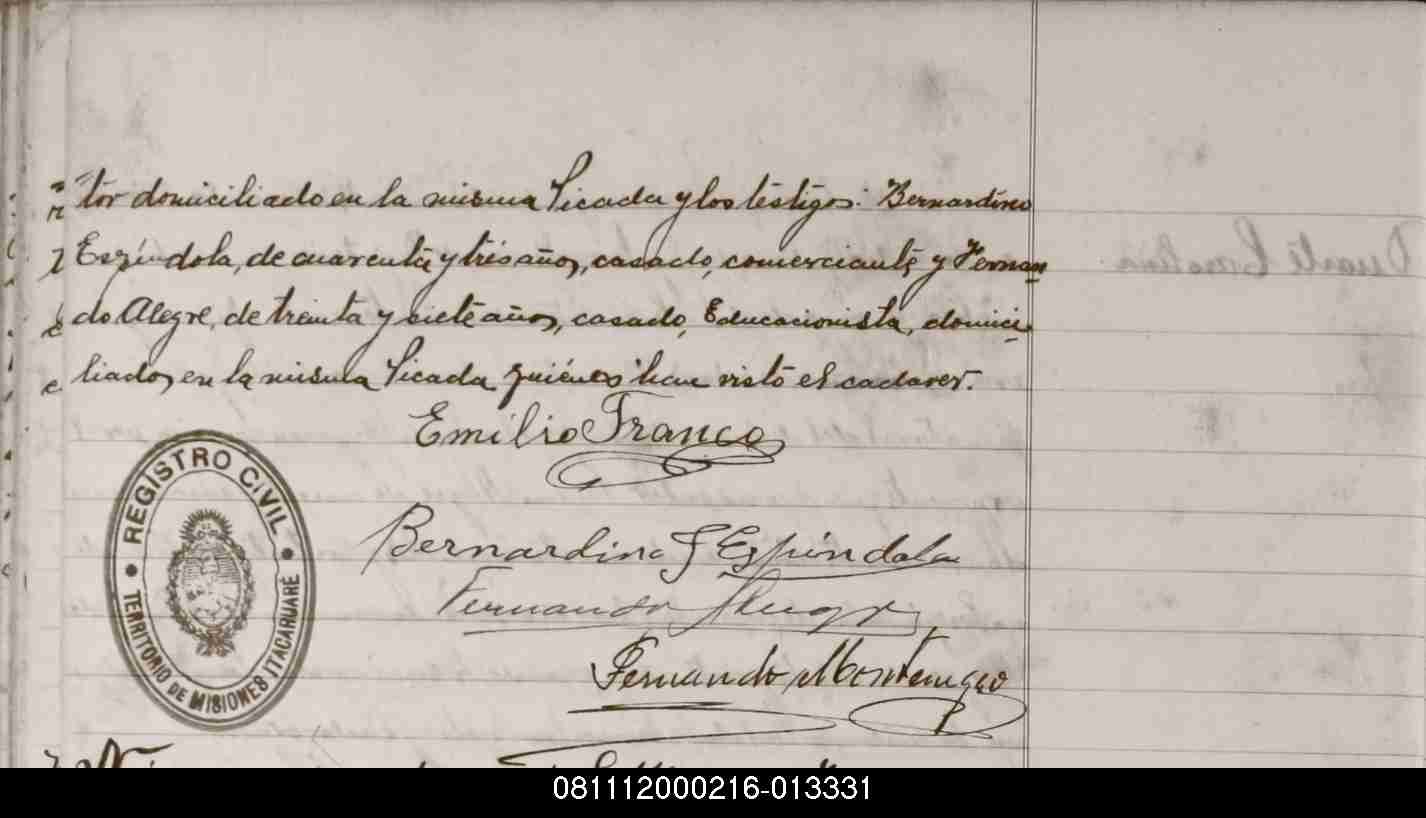 tor domiciliado en la misma Picada y los testigos: Bernardino
Espíndola, de cuarenta y tres años, casado, comerciante, y Fernan
do Alegre, de treinta y siete años, casado, Educacionista, domici
liados, en la misma Picada quiénes han visto el cadaver.
Emilio Franco
Bernardino J Espíndola
Fernando
Fernando Montenegro
REGISTRO CIVIL
TERRITORIO DE MISIONES ITACARUARÉ
081112000216-013331